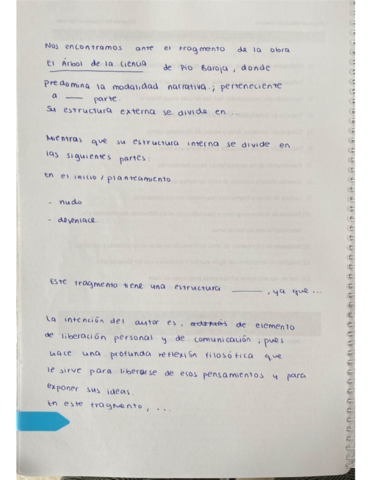 Nos encontramos ante el fragmento de la obra
El Árbol de la Ciencia de Pío Baroja, donde
predomina la modalidad narrativa; perteneciente
a ___ parte.
Su estructura externa se divide en...
Mientras que su estructura interna se divide en
las siguientes partes:
En el inicio / planteamiento
- nudo
- desenlace
Este fragmento tiene una estructura ______, ya que ...
La intención del autor es, además de elemento
de liberación personal y de comunicación, pues
hace una profunda reflexión filosófica que
le sirve para liberarse de esos pensamientos y para
exponer sus ideas.
En este fragmento, ...